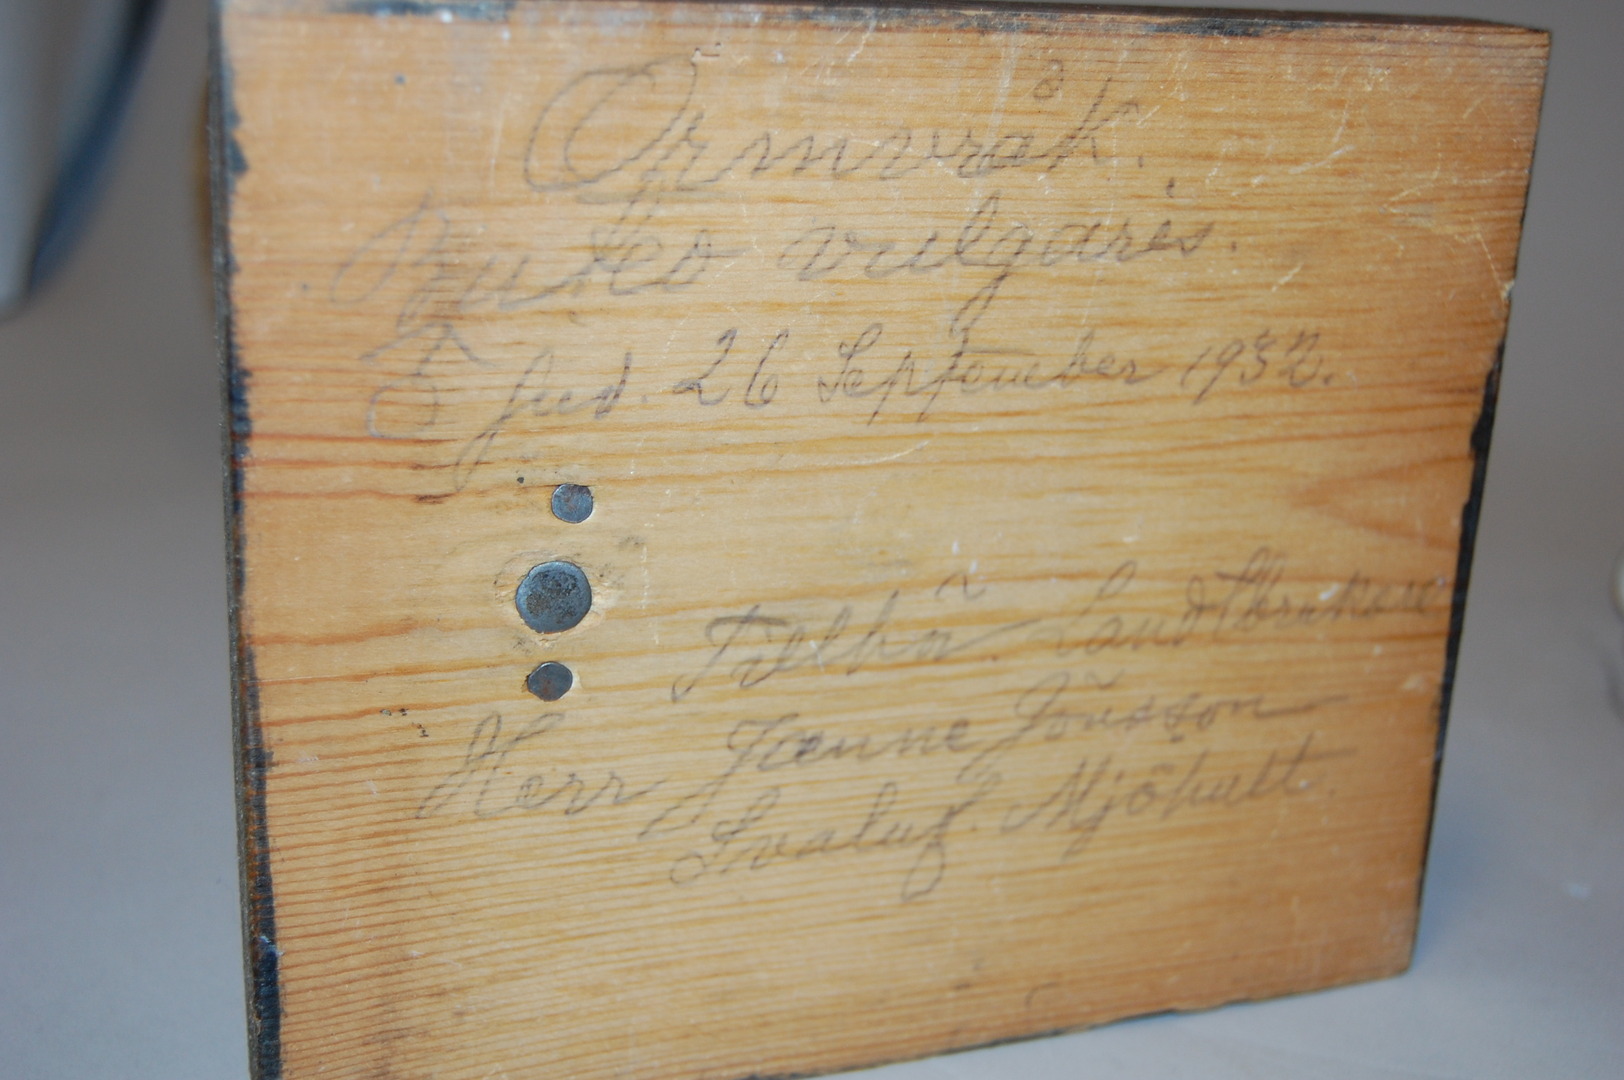 Ormvråk.
Buteo vulgaris.
♂ fud. 26 September 1932.
Tillhör Landtbrukare
Herr Janne Jönsson
Svaluf. Mjöhult.